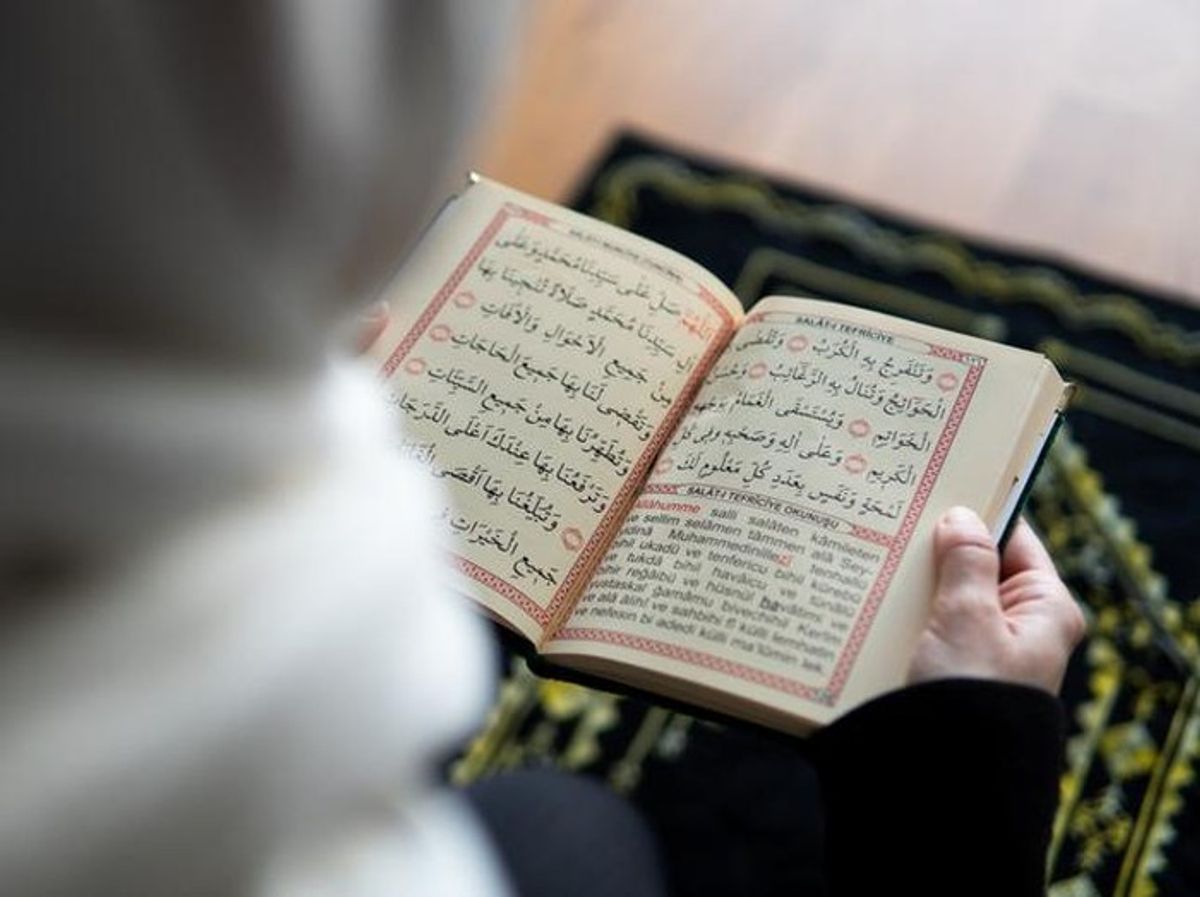 SALÂT-I TEFRİCİYE
وَتَنْفَرِجُ بِهِ الْكُرَبُ وَتُقْضَى
الْحَوَائِجُ وَتُنَالُ بِهِ الرَّغَائِبُ وَحُسْنُ
الْخَوَاتِمِ وَيُسْتَسْقَى الْغَمَامُ
الْكَرِيمِ وَعَلَى اٰلِهِ وَصَحْبِهِ فِى كُلِّ
لَمْحَةٍ وَنَفَسٍ بِعَدَدِ كُلِّ مَعْلُومٍ لَكَ
SALÂT-I TEFRİCİYE OKUNUŞU
salli salâten kâmileten
ve sellim selâmen tâmmen alâ Sey-
Muhammedinillezî tenhallü
ukadü ve tenfericu bihil kürebü
ve tukdâ bihil havâicu ve tünâlü
reğâibü ve hüsnül havâtimi ve
yustaskal ğamâmu bivechihil Kerîm
ve alâ âlihî ve sahbihî fî külli lemhatin
ve nefesin bi adedi külli ma'lûmin lek.
صَلِّ عَلَى سَيِّدِنَا مُحَمَّدٍ وَعَلَى
سَيِّدِنَا مُحَمَّدٍ صَلَاةً تُنْجِينَا بِهَا
مِنْ جَمِيعِ الْاَحْوَالِ وَالْاٰفَاتِ
وَتَقْضِى لَنَا بِهَا جَمِيعَ الْحَاجَاتِ
وَتُطَهِّرُنَا بِهَا مِنْ جَمِيعِ السَّيِّئَاتِ
وَتَرْفَعُنَا بِهَا عِنْدَكَ اَعْلَى الدَّرَجَاتِ
وَتُبَلِّغُنَا بِهَا اَقْصَى
جَمِيعِ الْخَيْرَاتِ